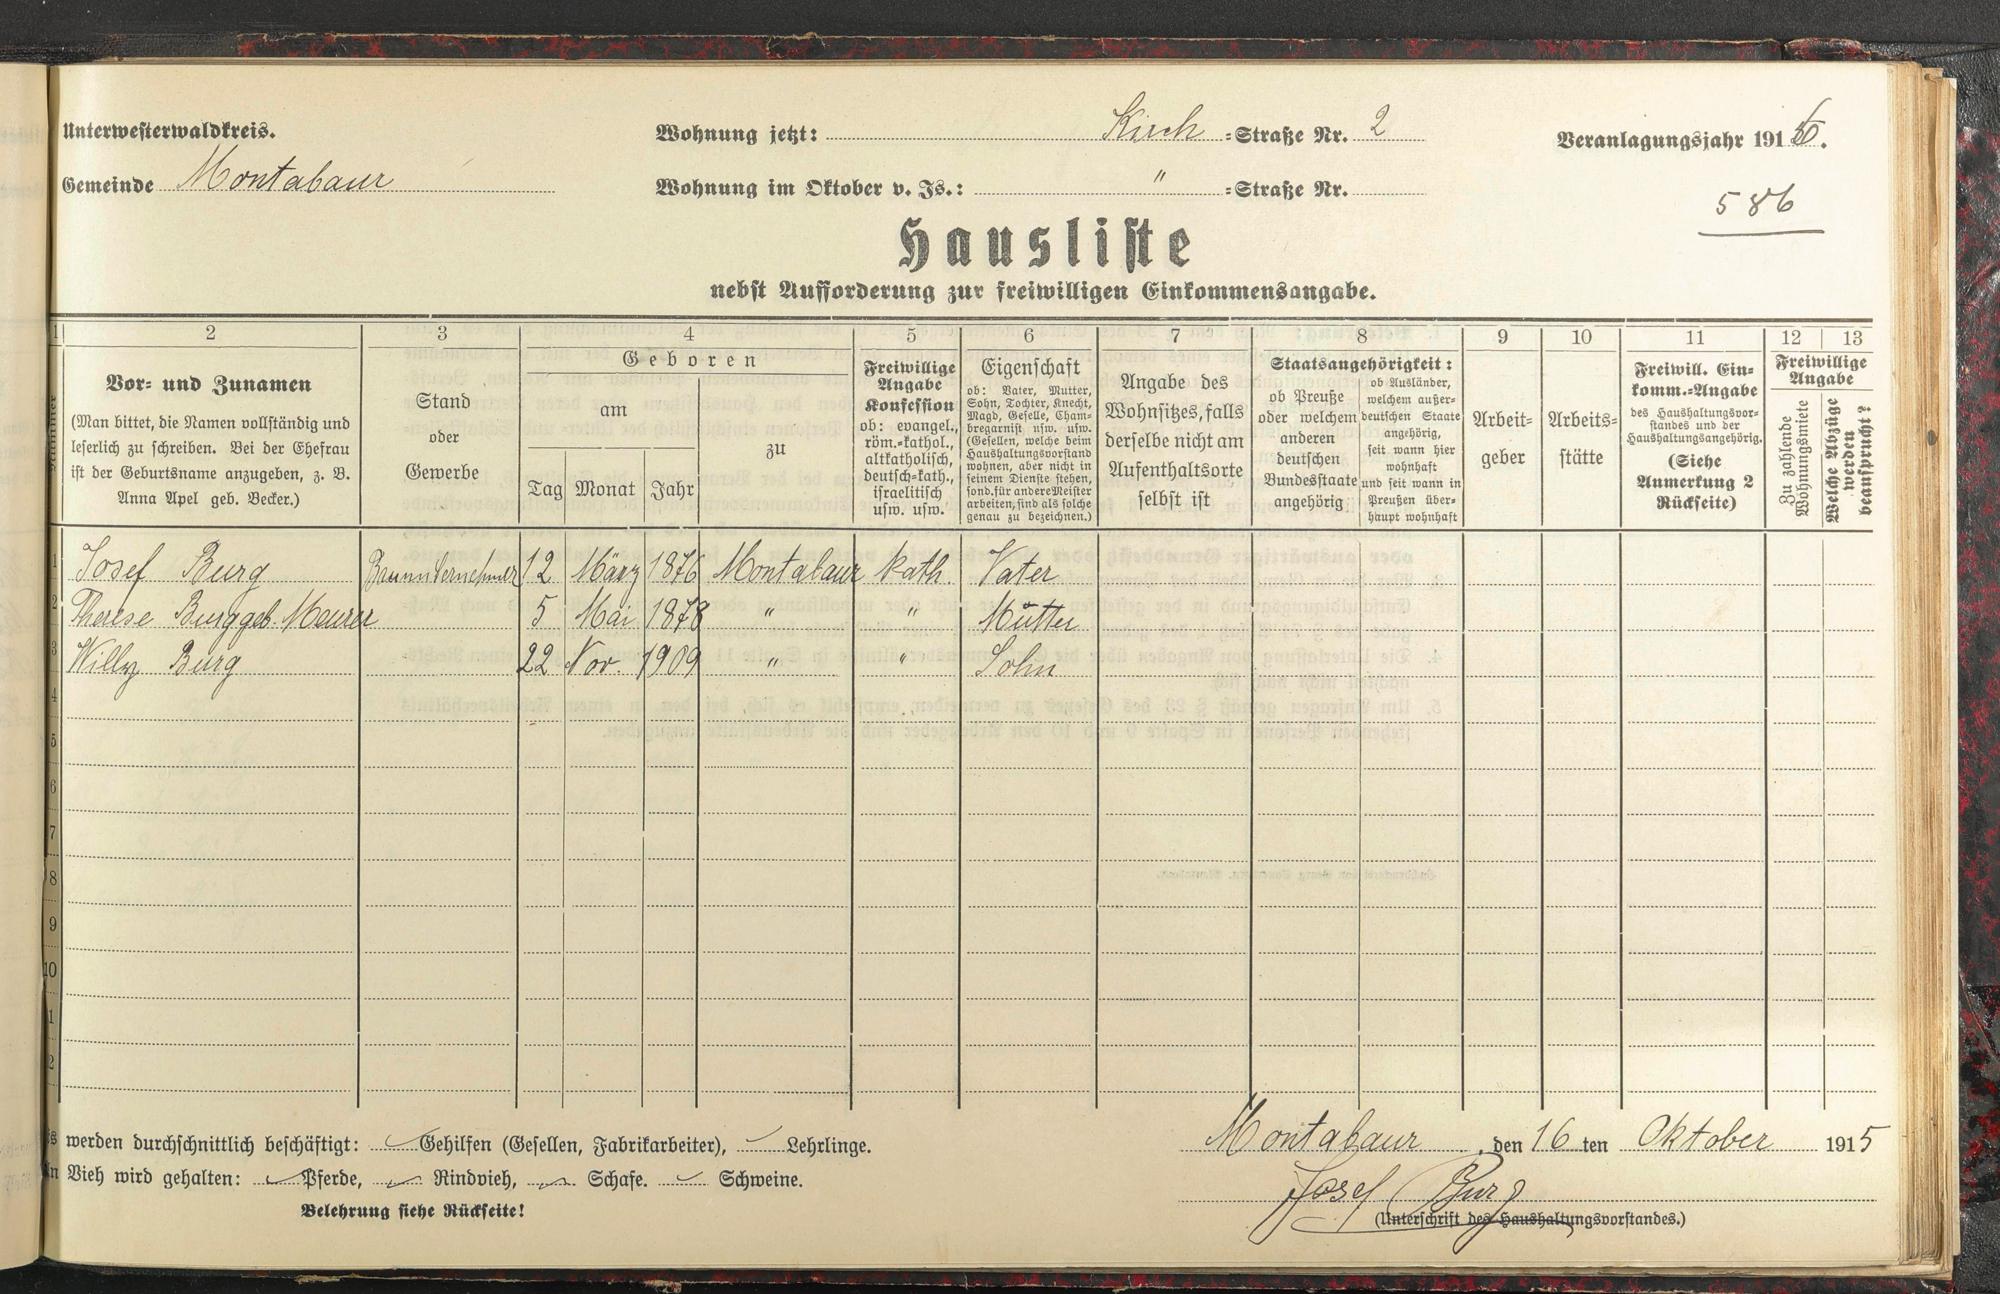 Unterwesterwaldkreis.
Gemeinde Montabaur
Wohnung jetzt: Kirch =Straße Nr. 2
Wohnung im Oktober v. Js.: " =Straße Nr.
Veranlagungsjahr 1916.
586
Hausliste
nebst Aufforderung zur freiwilligen Einkommensangabe.
1 2 3 4 5 6 7 8 9 10 11 12 13
Nummer
Vor- und Zunamen
(Man bittet, die Namen vollständig und
leserlich zu schreiben. Bei der Ehefrau
ist der Geburtsname anzugeben, z. B.
Anna Apel geb. Becker.)
Stand
oder
Gewerbe
Geboren
am
Tag Monat Jahr
zu
Freiwillige
Angabe
Konfession
ob: evangel.,
röm.-kathol.,
altkatholisch,
deutsch-kath.,
israelitisch
usw. usw.
Eigenschaft
ob: Vater, Mutter,
Sohn, Tochter, Knecht,
Magd, Geselle, Cham-
bregarnist usw. usw.
(Gesellen, welche beim
Haushaltungsvorstand
wohnen, aber nicht in
seinem Dienste stehen,
sond. für andere Meister
arbeiten, sind als solche
genau zu bezeichnen.)
Angabe des
Wohnsitzes, falls
derselbe nicht am
Aufenthaltsorte
selbst ist
Staatsangehörigkeit:
ob Preuße
oder welchem
anderen
deutschen
Bundesstaate
angehörig
ob Ausländer,
welchem außer-
deutschen Staate
angehörig,
seit wann hier
wohnhaft
und seit wann in
Preußen über-
haupt wohnhaft
Arbeit-
geber
Arbeits-
stätte
Freiwill. Ein-
komm.-Angabe
des Haushaltungsvor-
standes und der
Haushaltungsangehörig.
(Siehe
Anmerkung 2
Rückseite)
Freiwillige
Angabe
Zu zahlende
Wohnungsmiete
Welche Abzüge
werden
beansprucht?
1 Josef Burg 12 März 1876 Montabaur kath. Vater
2 Therese Burg geb. Meurer 5 Mai 1878 " " Mutter
3 Willy Burg 22 Nov. 1909 " " Sohn
4
5
6
7
8
9
10
1
2
werden durchschnittlich beschäftigt: Gehilfen (Gesellen, Fabrikarbeiter), Lehrlinge.
Vieh wird gehalten: Pferde, Rindvieh, Schafe. Schweine.
Belehrung siehe Rückseite!
Montabaur, den 16 ten Oktober 1915
Josef Burg
(Unterschrift des Haushaltungsvorstandes.)